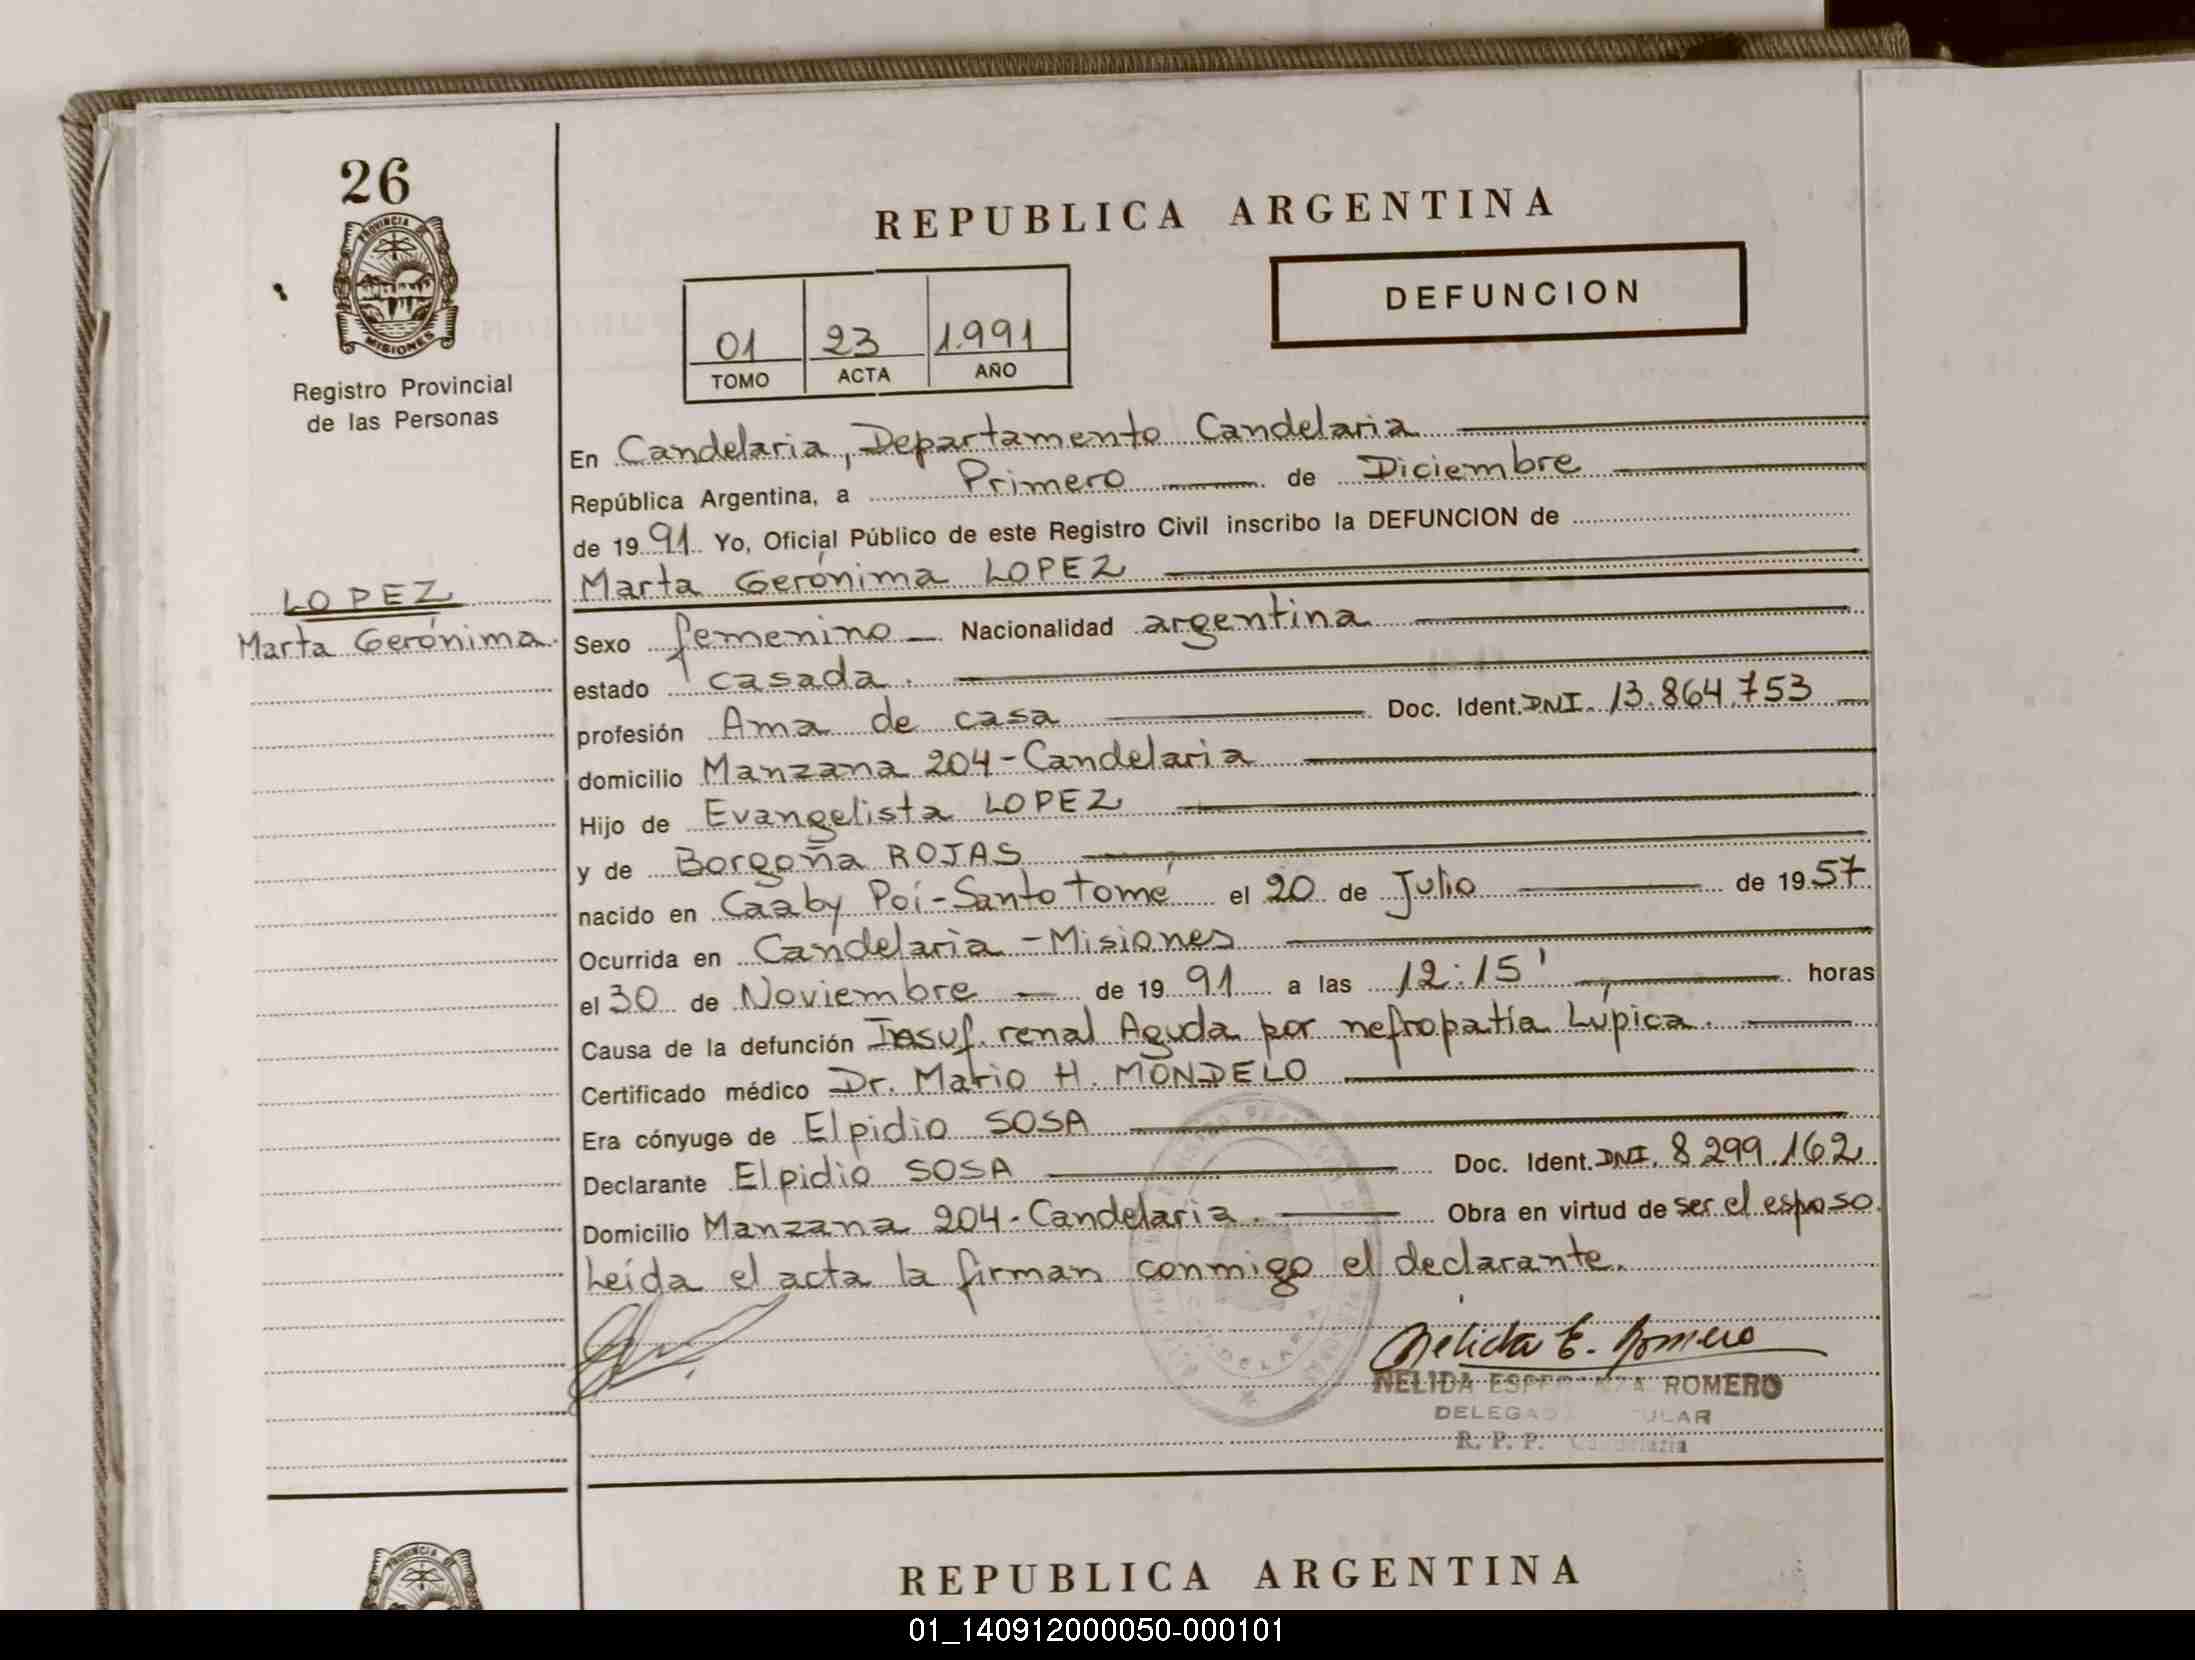 26
PROVINCIA DE
MISIONES
Registro Provincial
de las Personas
LOPEZ
Marta Gerónima.
REPUBLICA ARGENTINA
DEFUNCION
01 23 1.991
TOMO ACTA AÑO
En Candelaria, Departamento Candelaria
República Argentina, a Primero de Diciembre
de 1991 Yo, Oficial Público de este Registro Civil inscribo la DEFUNCION de
Marta Gerónima LOPEZ
Sexo femenino Nacionalidad argentina
estado casada.
profesión Ama de casa Doc. Ident. DNI. 13.864.753
domicilio Manzana 204-Candelaria
Hijo de Evangelista LOPEZ
y de Borgoña ROJAS
nacido en Caaby Poí-Santo Tomé el 20 de Julio de 1957
Ocurrida en Candelaria-Misiones
el 30 de Noviembre de 1991 a las 12:15' horas
Causa de la defunción Insuf. renal Aguda por nefropatía Lúpica.
Certificado médico Dr. Mario H. MONDELO
Era cónyuge de Elpidio SOSA
Declarante Elpidio SOSA Doc. Ident. DNI. 8299.162
Domicilio Manzana 204-Candelaria. Obra en virtud de ser el esposo.
Leída el acta la firman conmigo el declarante.
Nelida E. Romero
NELIDA ESPERANZA ROMERO
DELEGADA TITULAR
R. P. P. Candelaria
PROVINCIA DE
REPUBLICA ARGENTINA
01_140912000050-000101